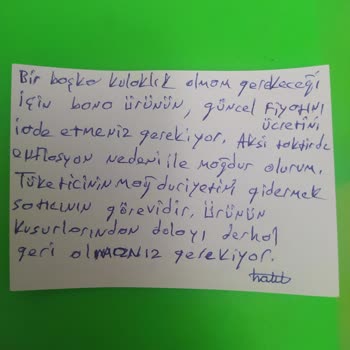 Bir başka kulaklık almam gerekeceği
için bana ürünün, güncel fiyatını
ücretini
iade etmeniz gerekiyor. Aksi taktirde
enflasyon nedeni ile mağdur olurum.
Tüketicinin mağduriyetini gidermek
satıcının görevidir. Ürünün
kusurlarından dolayı derhal
geri almanız gerekiyor.
halil